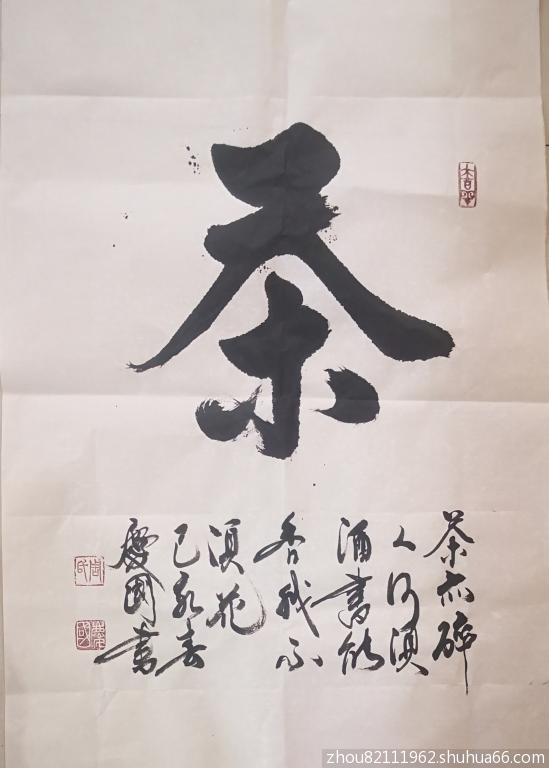 茶
茶亦醉
人何須
酒書能
香我不
須花
己亥春
慶國書
zhou82111962.shuhua66.com